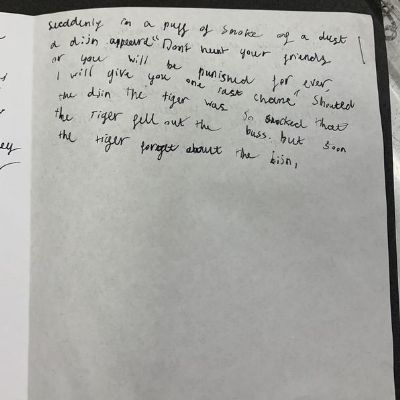 Suddenly in a puff of smoke of a dust
a dijn appeard "Dont hunt your friends
or you will be punished for ever,
I will give you one last chance" Shouted
the djin the tiger was so shocked that
the Tiger fell out the buss. but soon
the tiger forgot about the